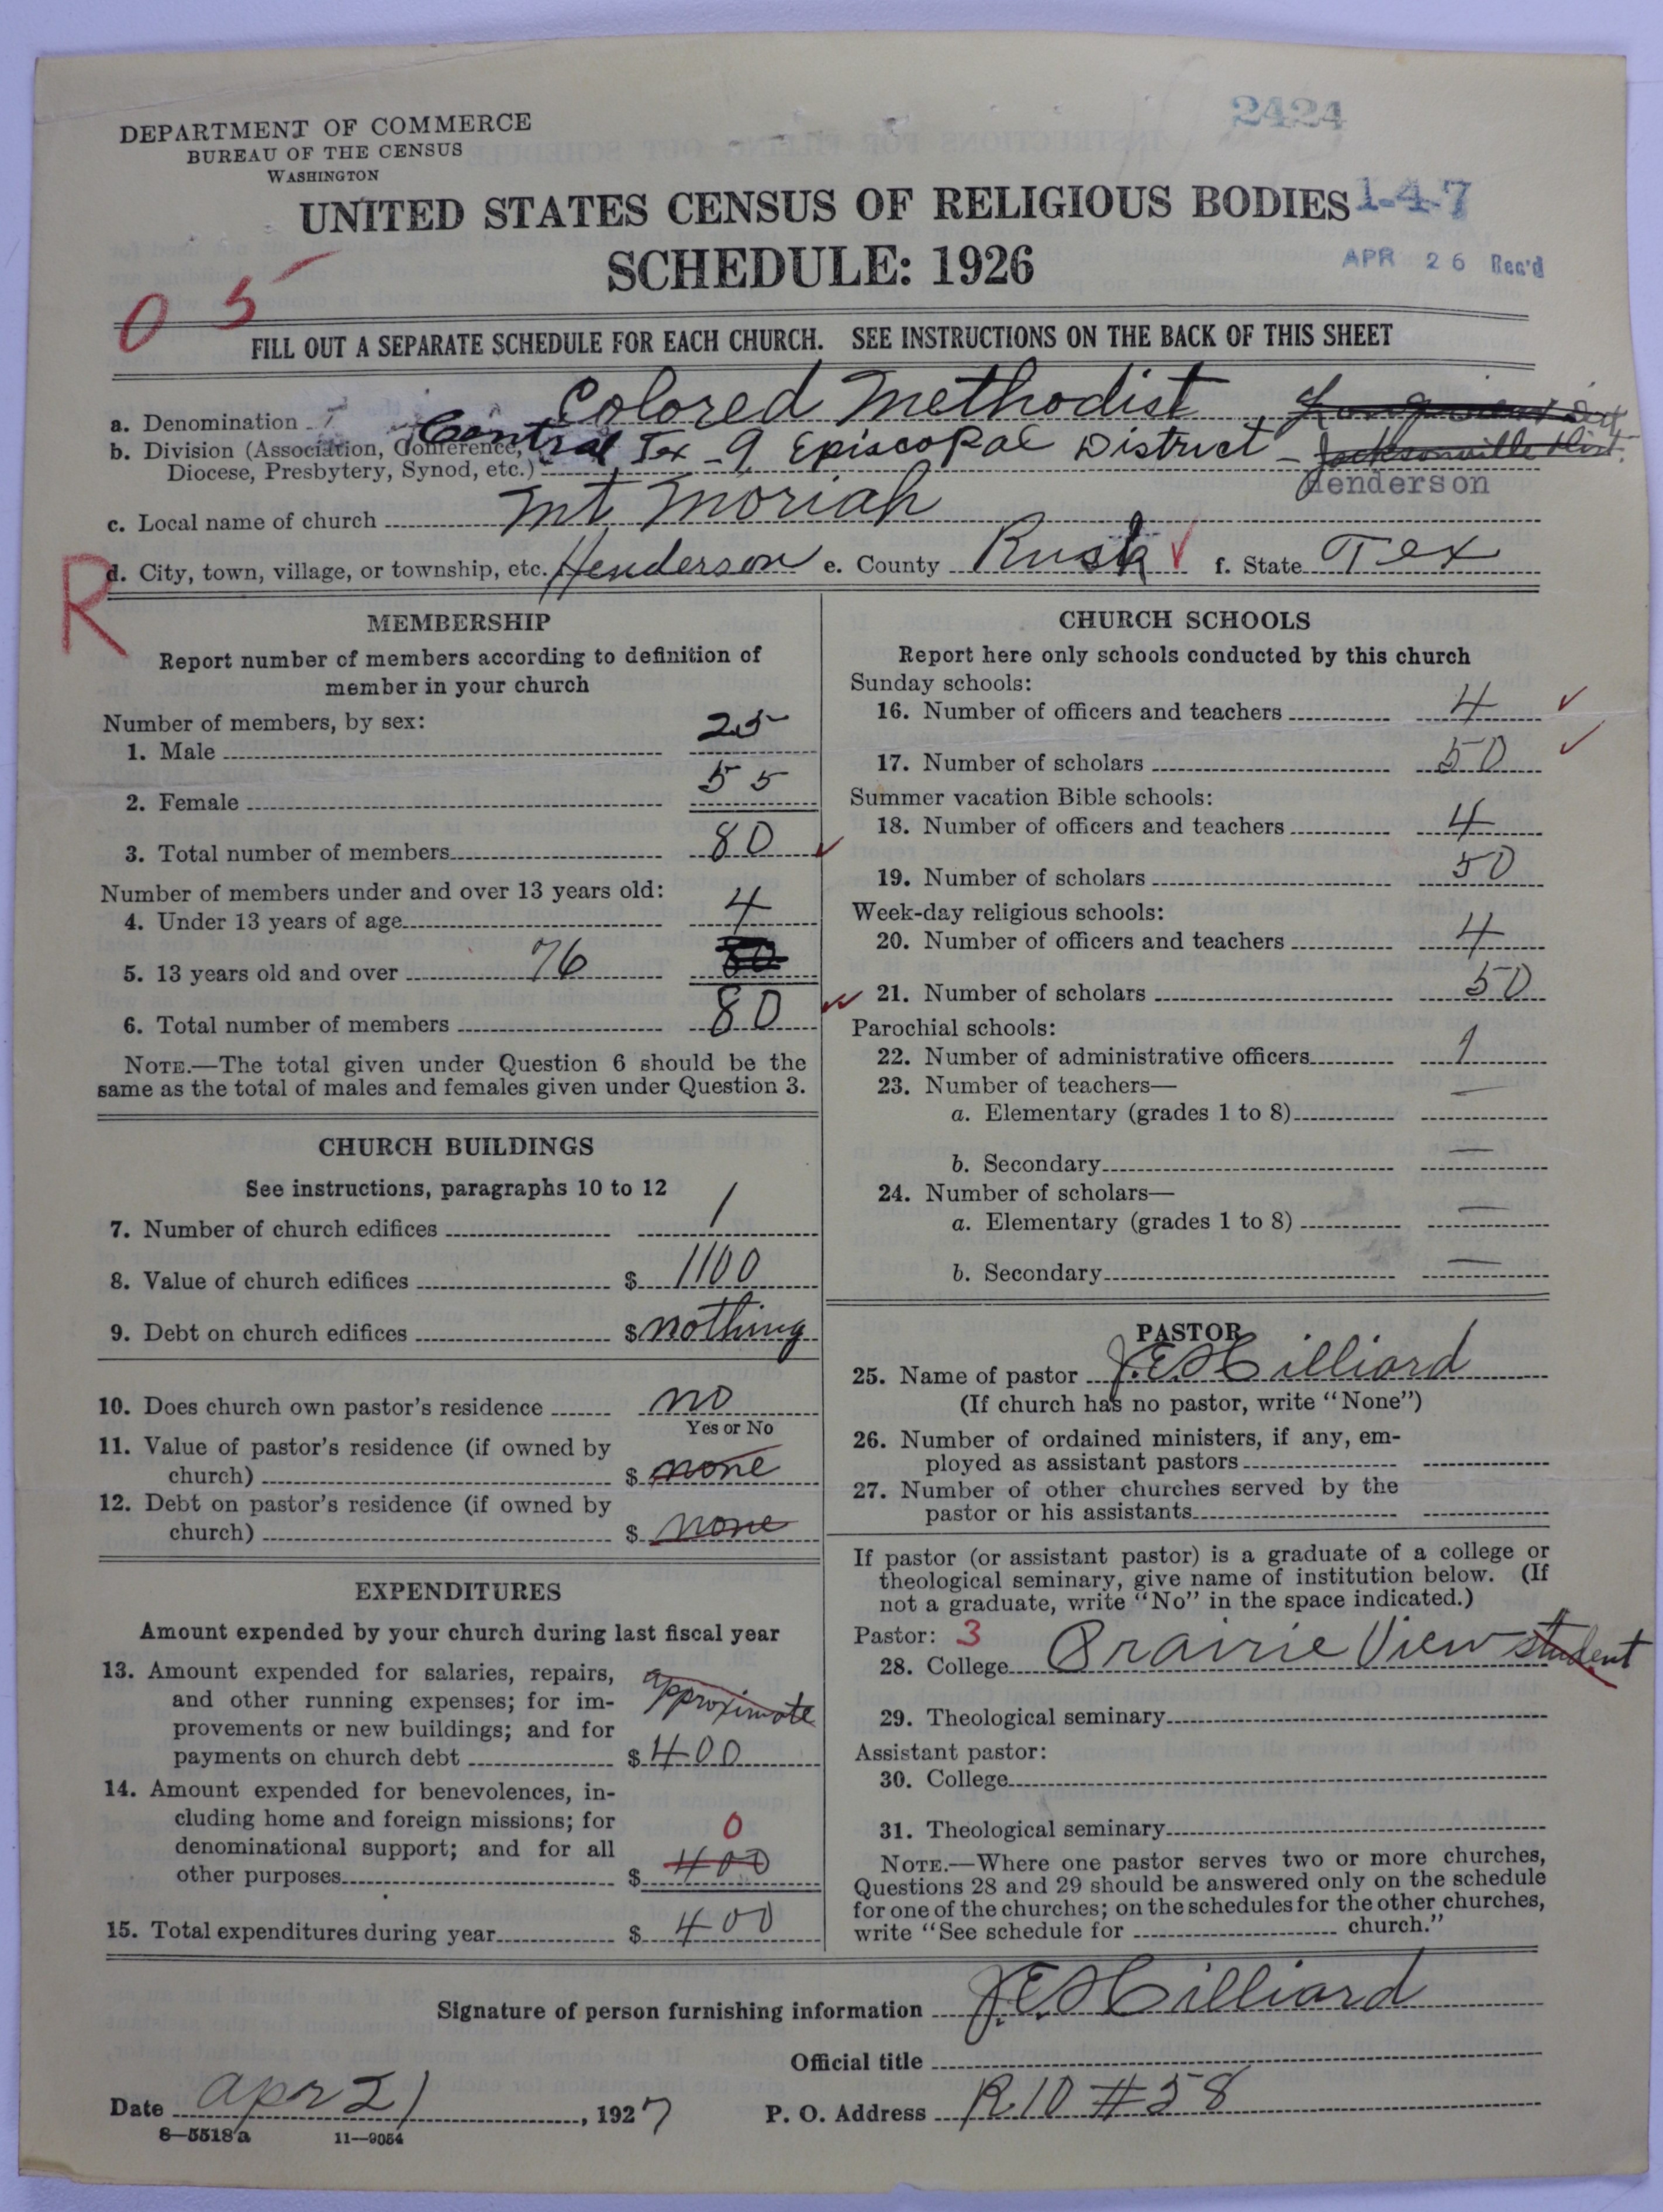 2424
DEPARTMENT OF COMMERCE
BUREAU OF THE CENSUS
WASHINGTON
UNITED STATES CENSUS OF RELIGIOUS BODIES 1-4-7
SCHEDULE: 1926
APR 26 Rec'd
05
FILL OUT A SEPARATE SCHEDULE FOR EACH CHURCH. SEE INSTRUCTIONS ON THE BACK OF THIS SHEET
a. Denomination Colored Methodist, Longview Dist
b. Division (Association, Conference, Diocese, Presbytery, Synod, etc.) Central Tex - 9 Episcopal District - Jacksonville Dist.
Henderson
c. Local name of church Mt. Moriah
R
d. City, town, village, or township, etc. Henderson e. County Rusk f. State Tex
MEMBERSHIP
Report number of members according to definition of
member in your church
Number of members, by sex:
1. Male 25
2. Female 55
3. Total number of members 80
Number of members under and over 13 years old:
4. Under 13 years of age 4
5. 13 years old and over 76 80
6. Total number of members 80
NOTE.—The total given under Question 6 should be the
same as the total of males and females given under Question 3.
CHURCH BUILDINGS
See instructions, paragraphs 10 to 12
7. Number of church edifices 1
8. Value of church edifices $ 1100
9. Debt on church edifices $ nothing
10. Does church own pastor's residence no
Yes or No
11. Value of pastor's residence (if owned by
church) $ none
12. Debt on pastor's residence (if owned by
church) $ none
EXPENDITURES
Amount expended by your church during last fiscal year
13. Amount expended for salaries, repairs,
and other running expenses; for im-
provements or new buildings; and for
payments on church debt approximate $ 400
14. Amount expended for benevolences, in-
cluding home and foreign missions; for
denominational support; and for all
other purposes 0 $ 400
15. Total expenditures during year $ 400
CHURCH SCHOOLS
Report here only schools conducted by this church
Sunday schools:
16. Number of officers and teachers 4
17. Number of scholars 50
Summer vacation Bible schools:
18. Number of officers and teachers 4
19. Number of scholars 50
Week-day religious schools:
20. Number of officers and teachers 4
21. Number of scholars 50
Parochial schools:
22. Number of administrative officers 1
23. Number of teachers—
a. Elementary (grades 1 to 8) —
b. Secondary —
24. Number of scholars—
a. Elementary (grades 1 to 8) —
b. Secondary —
PASTOR
25. Name of pastor J.E. Hilliard
(If church has no pastor, write "None")
26. Number of ordained ministers, if any, em-
ployed as assistant pastors
27. Number of other churches served by the
pastor or his assistants
If pastor (or assistant pastor) is a graduate of a college or
theological seminary, give name of institution below. (If
not a graduate, write "No" in the space indicated.)
Pastor: 3
28. College Prairie View student
29. Theological seminary
Assistant pastor:
30. College
31. Theological seminary
NOTE.—Where one pastor serves two or more churches,
Questions 28 and 29 should be answered only on the schedule
for one of the churches; on the schedules for the other churches,
write "See schedule for church."
Signature of person furnishing information J.E. Hilliard
Official title
Date Apr 21, 1927 P. O. Address R.10 #58
8—5518a 11—9054